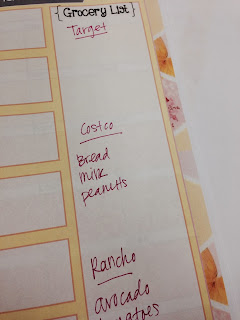 {Grocery List}
Target
Costco
Bread
milk
peanuts
Rancho
avocado
tomatoes